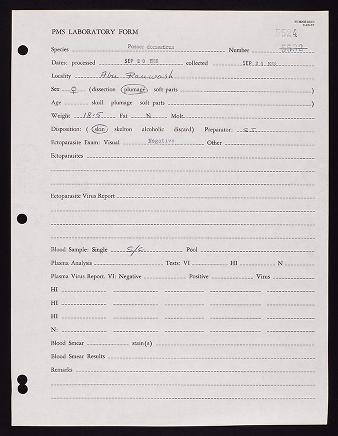 PMS LABORATORY FORM
Species Passer domesticus Number 5532
Dates: processed SEP 20 collected SEP 20
Locality Abu Rawash
Sex ♀ (dissection plumage soft parts )
Age skull plumage soft parts )
Weight 18.5 Fat N Molt
Disposition: ( skin skelton alcoholic discard) Preparator: S.I.
Ectoparasite Exam: Visual Negative Other
Ectoparasites
Ectoparasite Virus Report
Blood Sample: Single S/S Pool
Plasma Analysis Tests: VI HI N
Plasma Virus Report. VI: Negative Positive Virus
HI
HI
HI
N:
Blood Smear stain(s)
Blood Smear Results
Remarks